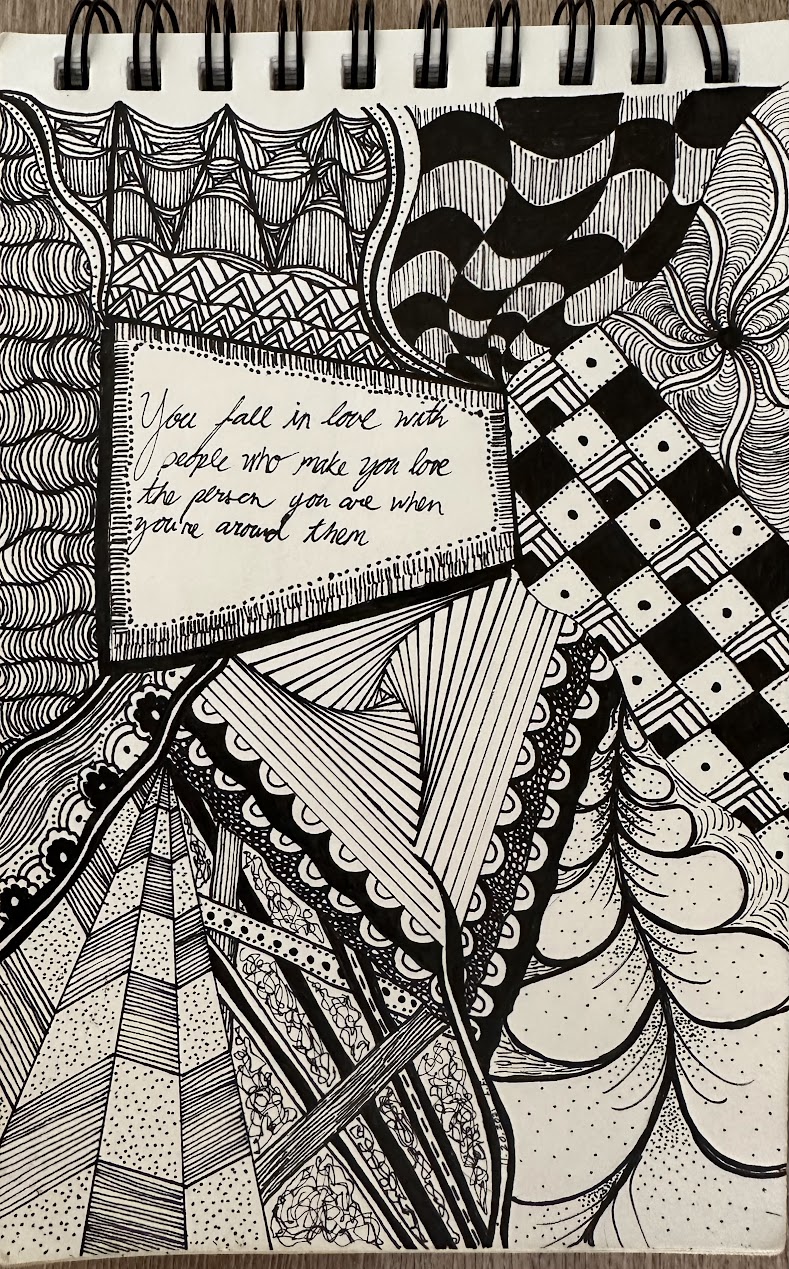 You fall in love with
people who make you love
the person you are when
you're around them